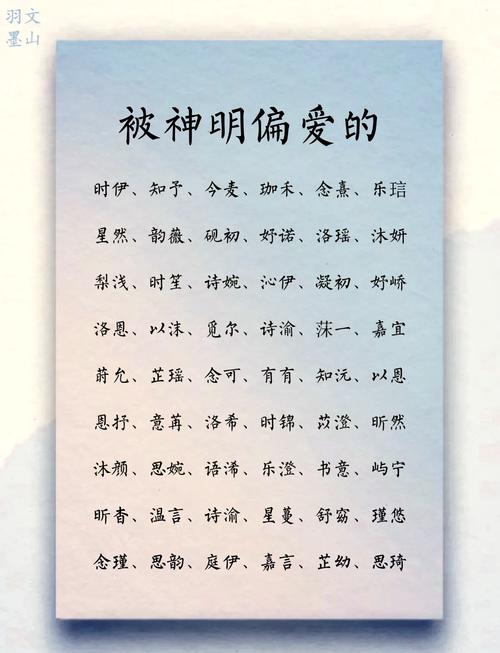 羽文
墨山
被神明偏爱的
时伊、知予、今麦、珈禾、念熹、乐琂
星然、韵薇、砚初、妤诺、洛瑶、沐妍
梨浅、时笙、诗婉、沁伊、凝初、妤峤
洛恩、以沫、觅尔、诗渝、莯一、嘉宜
蔚允、芷瑶、念可、有有、知沅、以恩
恩抒、意苒、洛希、时锦、苡澄、昕然
沐颜、思婉、语浠、乐澄、书意、屿宁
昕杳、温言、诗渝、星蔓、舒窈、瑾悠
念瑾、思韵、庭伊、嘉言、芷幼、思琦